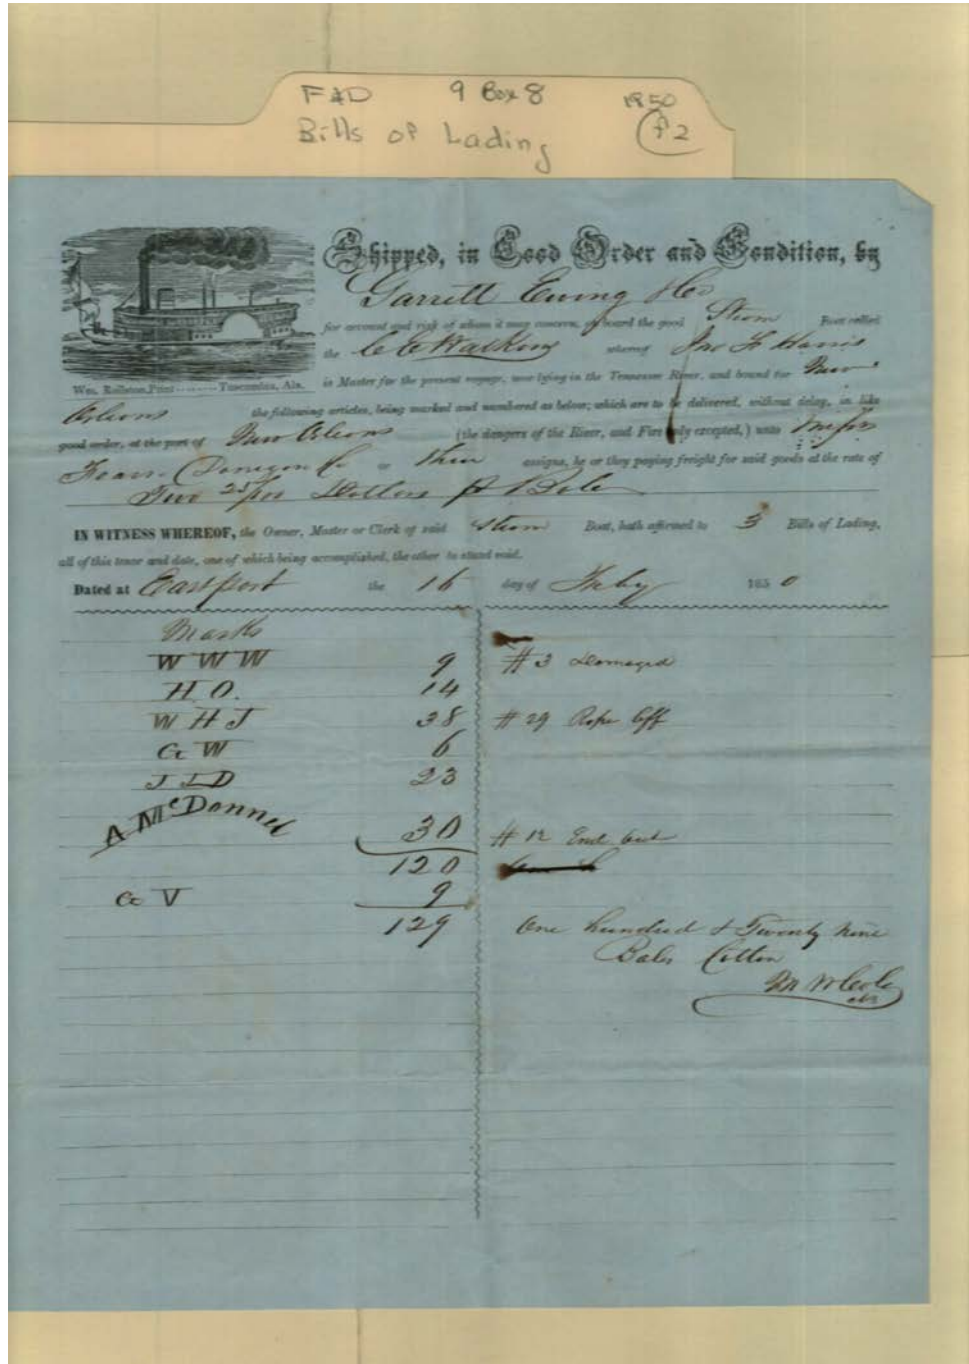 F&D 9 Box 8 1850
Bills of Lading f2
Shipped, in Good Order and Condition, by
Garrett Ewing & Co
for account and risk of whom it may concern, on board the good Steam Boat called
the whereof Jno F Harris
Wm. Ralston, Print Tuscumbia, Ala.
is Master for the present voyage, now lying in the Tennessee River, and bound for New
Orleans the following articles, being marked and numbered as below; which are to be delivered, without delay, in like
good order, at the port of New Orleans (the dangers of the River, and Fire only excepted,) unto Messrs
Fearn Donegan & Co or their assigns, he or they paying freight for said goods at the rate of
Two 25/100 Dollars pr Bale
IN WITNESS WHEREOF, the Owner, Master or Clerk of said Steam Boat, hath affirmed to 3 Bills of Lading,
all of this tenor and date, one of which being accomplished, the other to stand void.
Dated at Eastport the 16 day of Feby 1850
Marks
W W W 9 # 3 Damaged
H O. 14
W H J 38 # 29 Rope off
G W 6
J L D 23
A McDannel 30 # 12 End out
120
G V 9
129 One hundred & Twenty nine
Bales Cotton